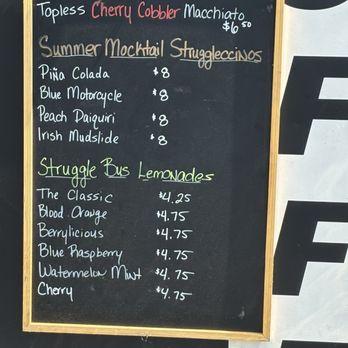 Topless Cherry Cobbler Macchiato
$6.50
Summer Mocktail Struggleccinos
Piña Colada $8
Blue Motorcycle $8
Peach Daiquiri $8
Irish Mudslide $8
Struggle Bus Lemonades
The Classic $4.25
Blood Orange $4.75
Berrylicious $4.75
Blue Raspberry $4.75
Watermelon Mint $4.75
Cherry $4.75